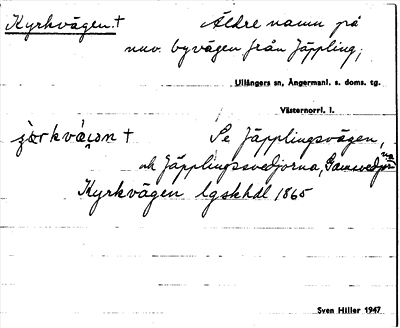 Kyrkvägen.† Äldre namn på
nuv. byvägen från Jäppling;
Ullångers sn, Ångermanl. s. doms. tg.
Västernorrl. l.
† Se Jäpplingsvägen,
ok Jäpplingssvedjorna, Gamsvedjorna
Kyrkvägen lgskhdl 1865
Sven Hiller 1947